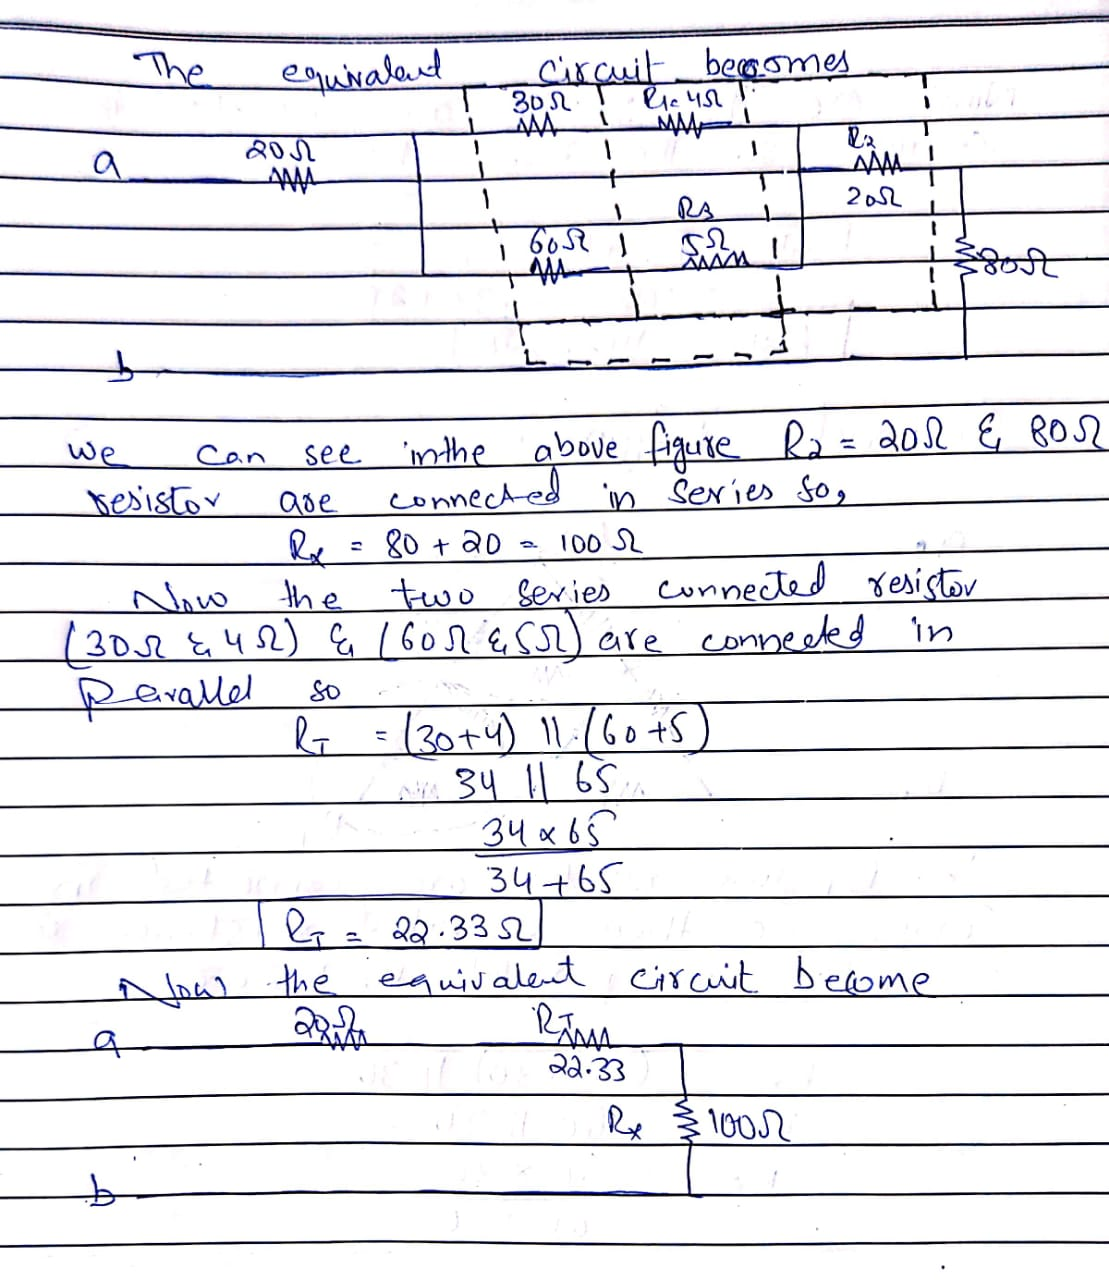 The equivalent circuit becomes
30Ω R1= 4Ω
a 20Ω R2
20Ω
R3
60Ω 5Ω
80Ω
b
we can see in the above figure R2 = 20Ω & 80Ω
resistor are connected in series so,
Rx = 80 + 20 = 100 Ω
Now the two series connected resistor
(30Ω & 4Ω) & (60Ω & 5Ω) are connected in
Parallel so
RT = (30+4) || (60+5)
34 || 65
34 × 65
34 + 65
RT = 22.33 Ω
Now the equivalent circuit become
a 20Ω RT
22.33
Rx 100Ω
b